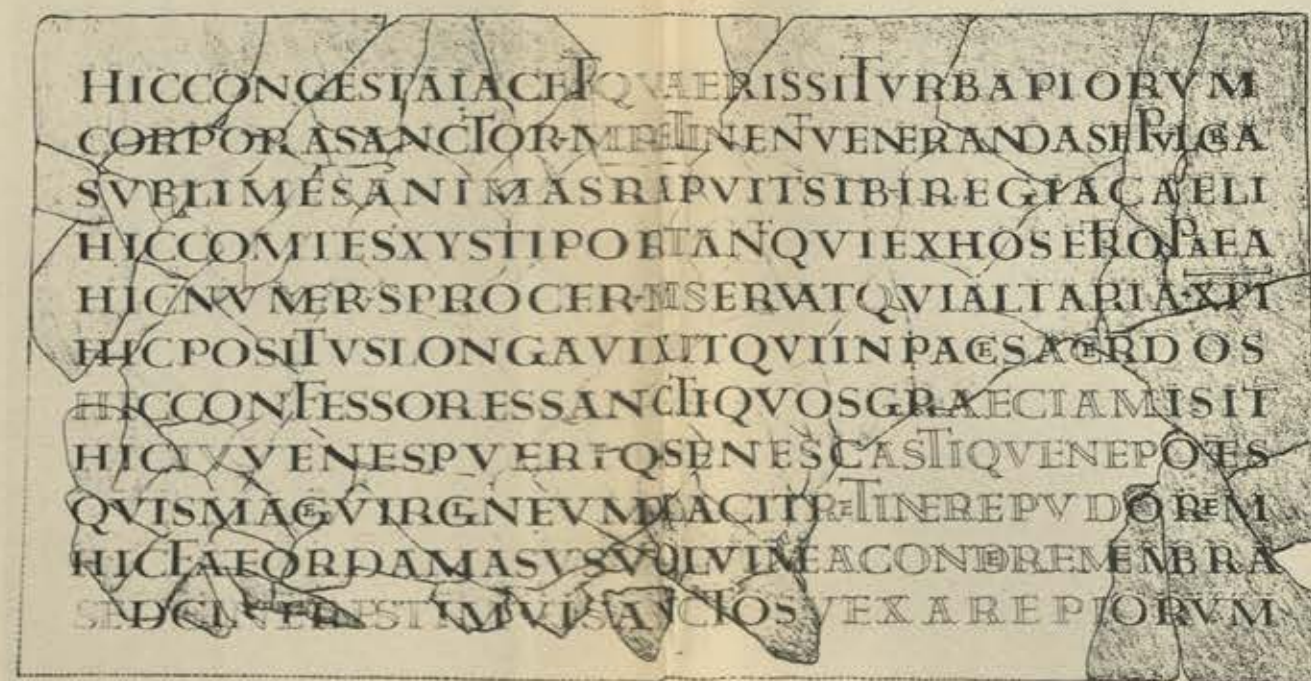 HICCONGESTAIACETQVAERISSITVRBAPIORVM
CORPORASANCTOR·MRETINENTVENERANDASEPVLCRA
SVBLIMESANIMASRAPVITSIBIREGIACAELI
HICCOMITESXYSTIPORTANTQVIEXHOSTETROPAEA
HICNVMER·SPROCER·MSERVATQVIALTARIA·XPI
HICPOSITVSLONGAVIXITQVIINPACESACERDOS
HICCONFESSORESSANCTIQVOSGRAECIAMISIT
HICIVVENESPVERIQSENESCASTIQVENEPOTES
QVISMAGEVIRGINEVMPLACVITRETINEREPVDOREM
HICFATEORDAMASVSVOLVIMEACONDEREMEMBRA
SEDCINERESTIMVISANCTOSVEXAREPIORVM